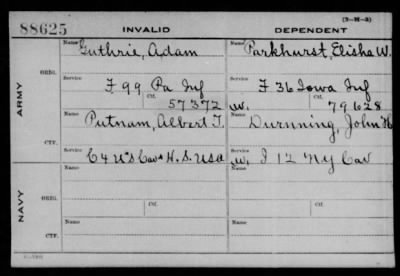 (3-H-3)
88625 INVALID DEPENDENT
Name Guthrie, Adam Name Parkhurst, Elisha W.
ARMY
ORIG.
Service F 99 Pa Inf Service F 36 Iowa Inf
Ctf. 57372 W. Ctf. 79628
Name Putnam, Albert T. Name Durnning, John H
CTF.
Service C 4 U S Cav & H. S. USA W. Service I 12 NY Cav
NAVY
Name Name
ORIG.
Ctf. Ctf.
Name Name
CTF.